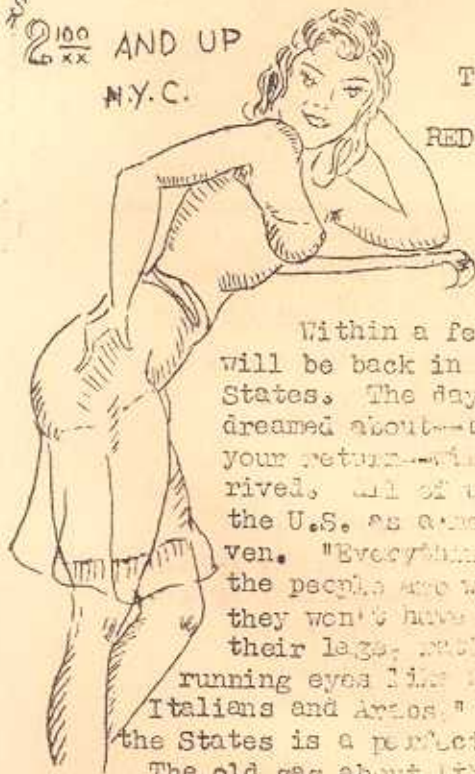 $2 100/xx AND UP
N.Y.C.
T
RED
Within a fe
will be back in
States. The day
dreamed about--
your return--wi
rived. All of
the U.S. as a
ven. "Everythin
the people are
they won't have
their legs,
running eyes like
Italians and Arabs."
the States is a perfec
The old gag about